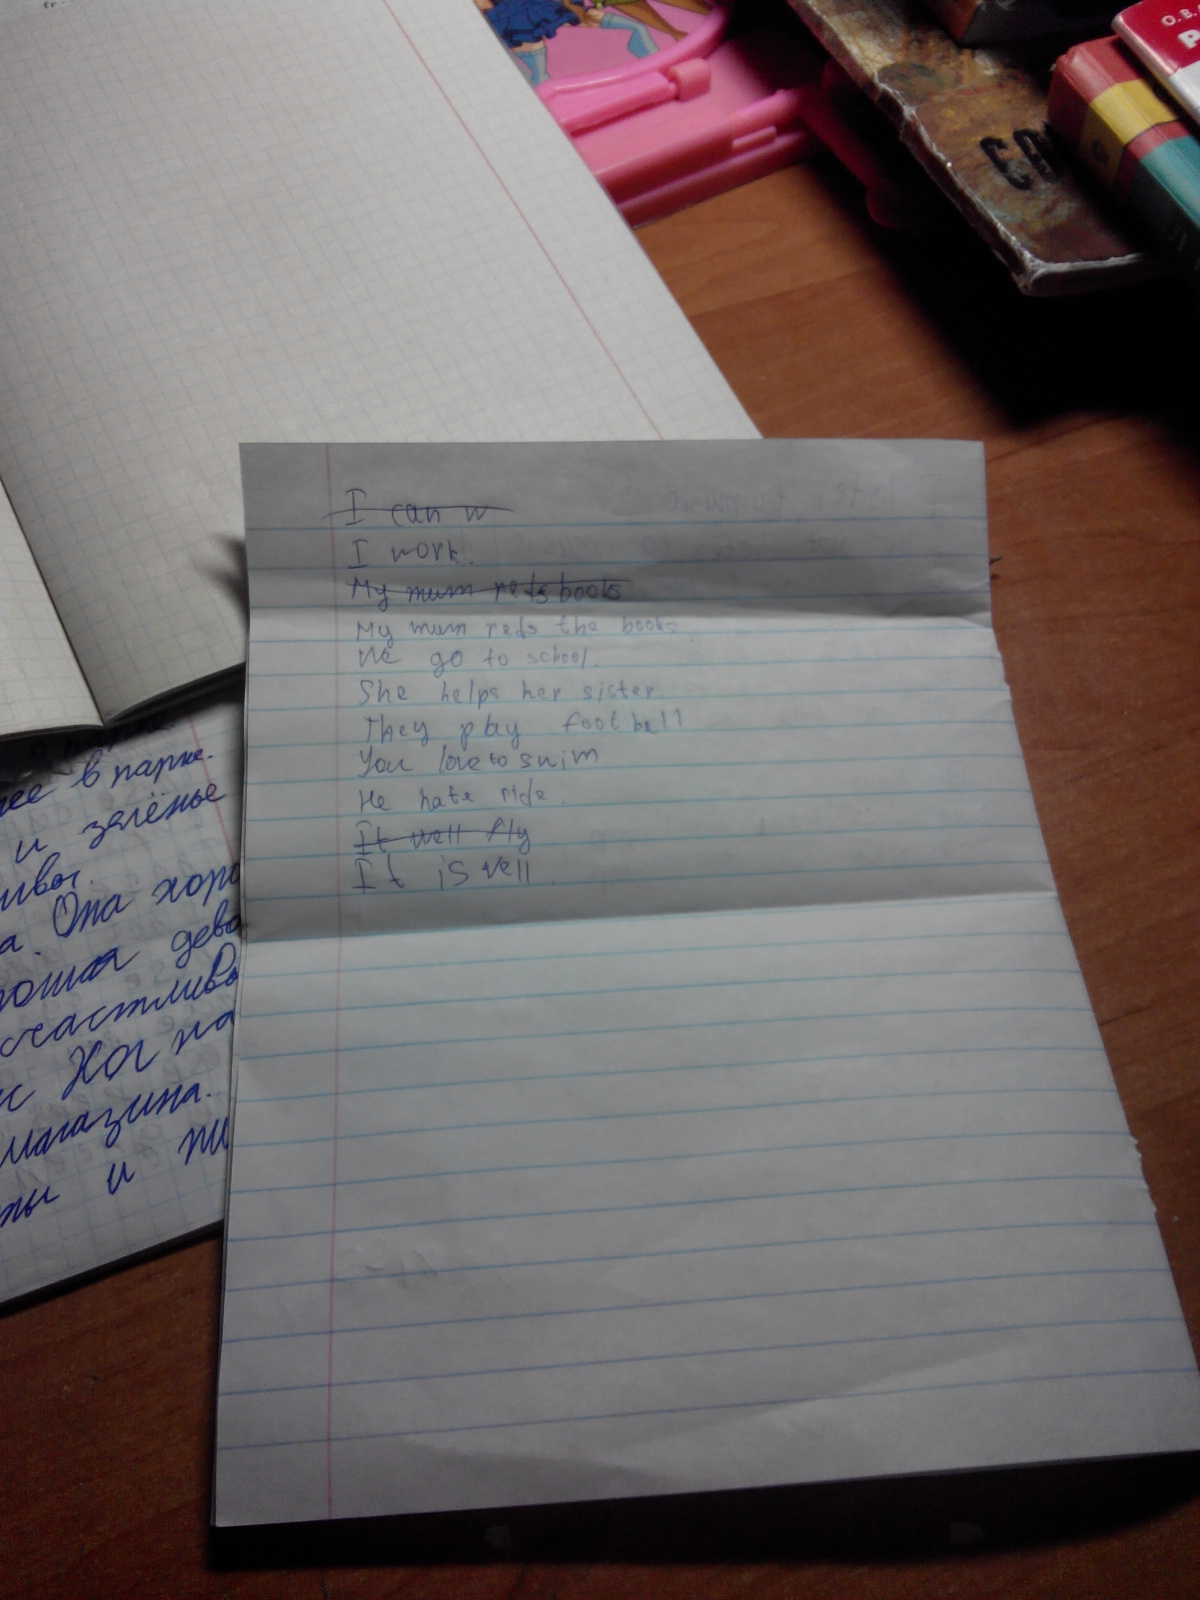 I can w
I work.
My mum reds books
My mum reds the books
We go to school.
She helps her sister
They play football
You love to swim
He hate ride.
It well fly
It is well.
в парке.
и зелёные
а. Она
счастливы
магазина.
и
O.B.